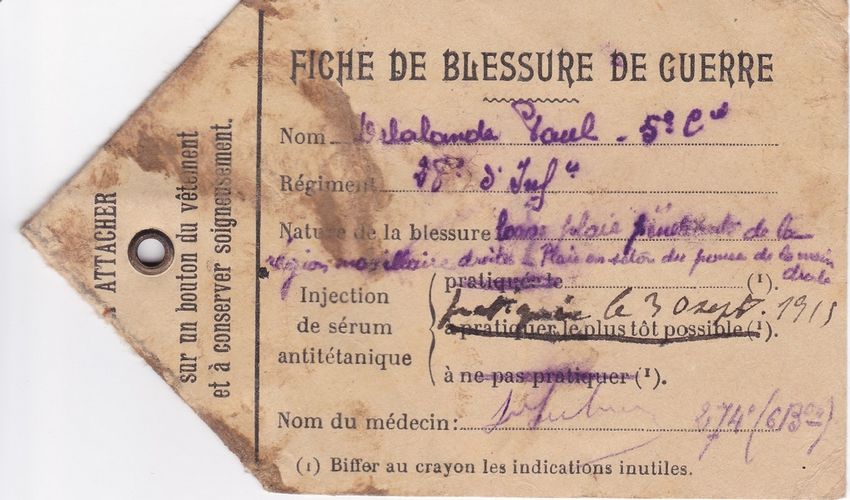 FICHE DE BLESSURE DE GUERRE
Nom Delalande Paul - 5e Cie
Régiment 28e d'Infie
Nature de la blessure plaie pénétrante de la
région maxillaire droite Plaie en séton du pouce de la main
droite
pratiquée le (1).
pratiquée le 30 sept. 1915
à pratiquer le plus tôt possible (1).
à ne pas pratiquer (1).
Injection
de sérum
antitétanique
Nom du médecin: 274e (6 Bon)
(1) Biffer au crayon les indications inutiles.
A ATTACHER
sur un bouton du vêtement
et à conserver soigneusement.